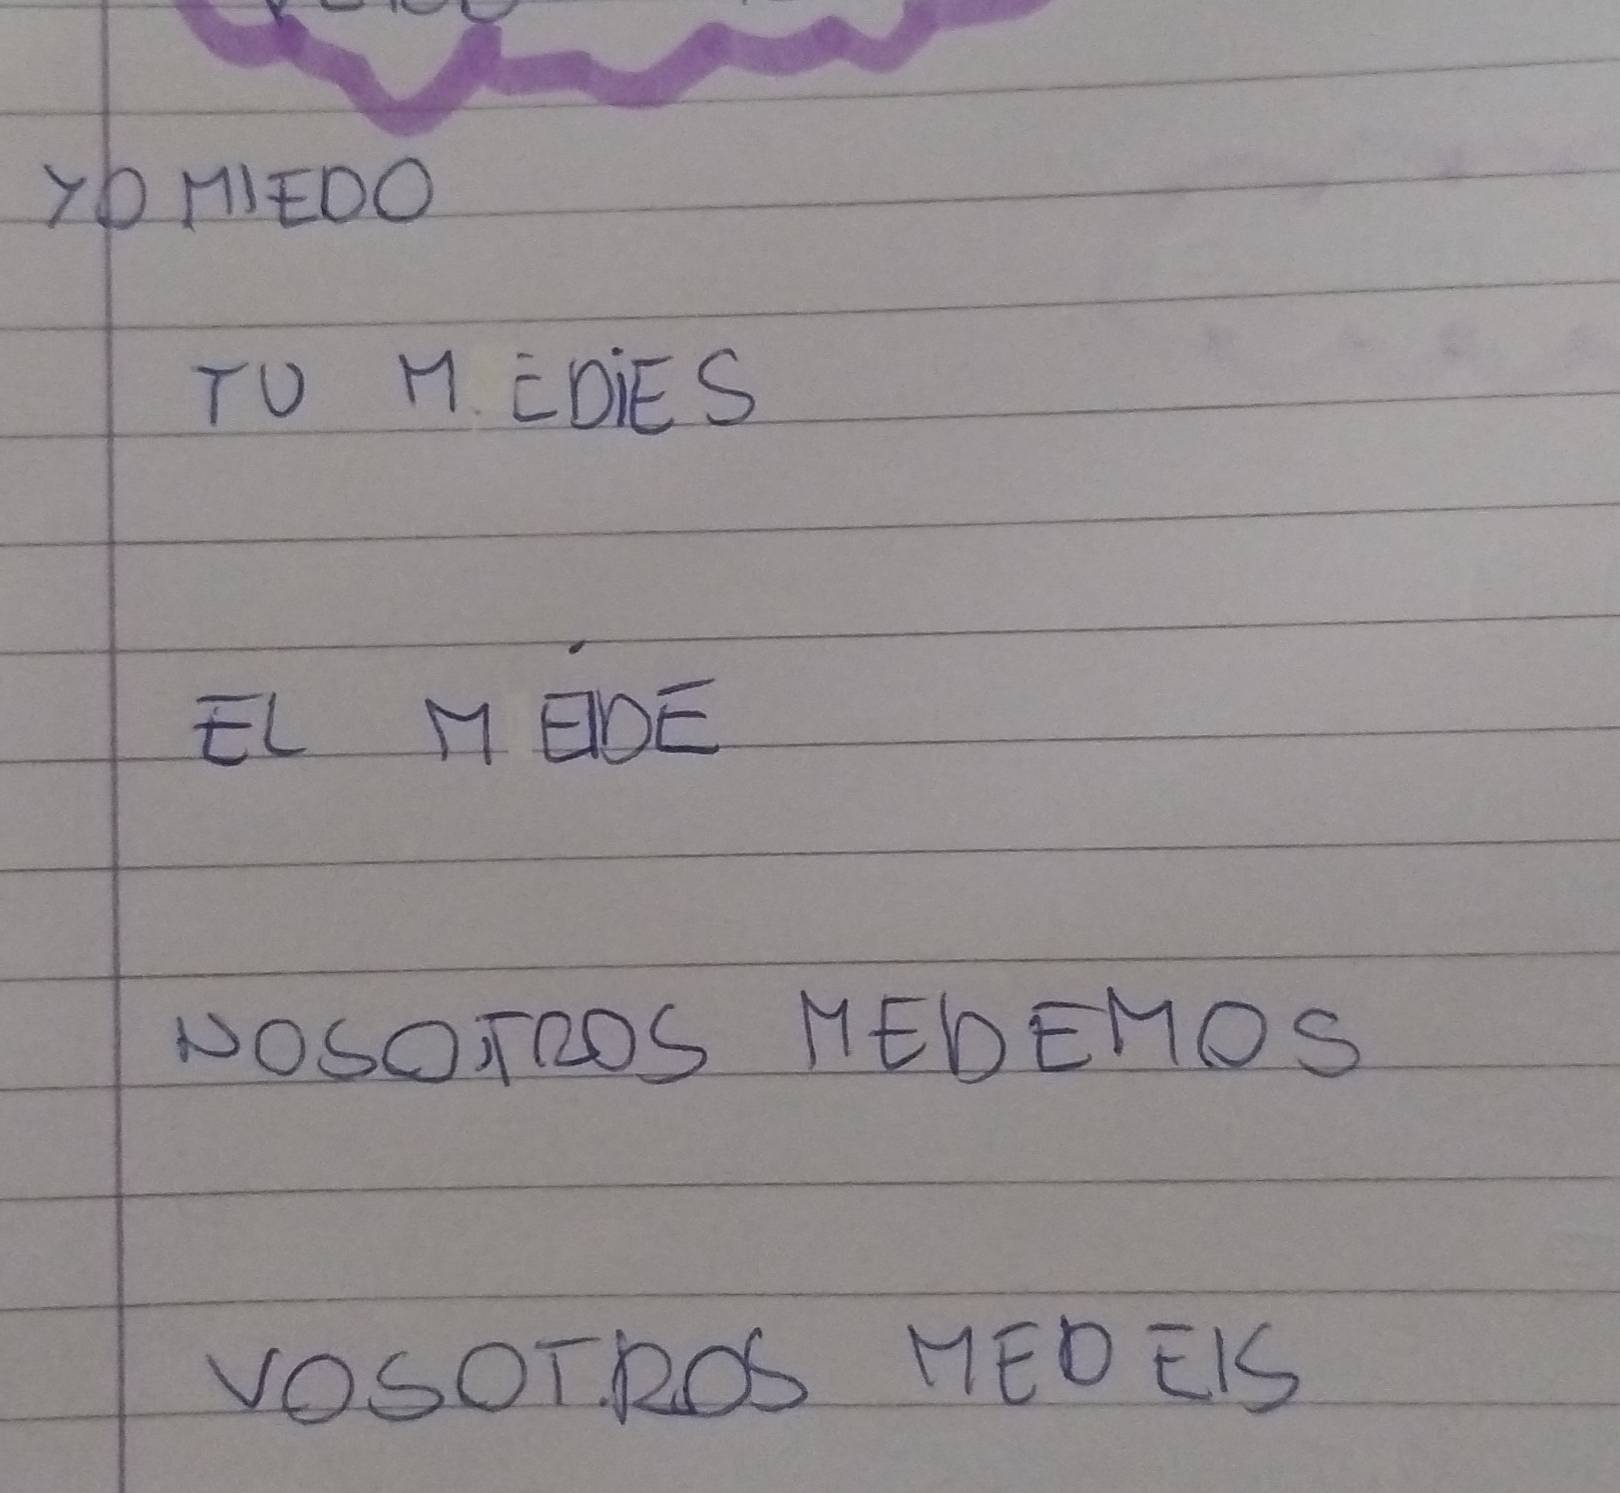 YO MIEDO
TU M EDIES
EL M EIDE
NOSOTROS MEDEMOS
VOSOTROS MEDEIS